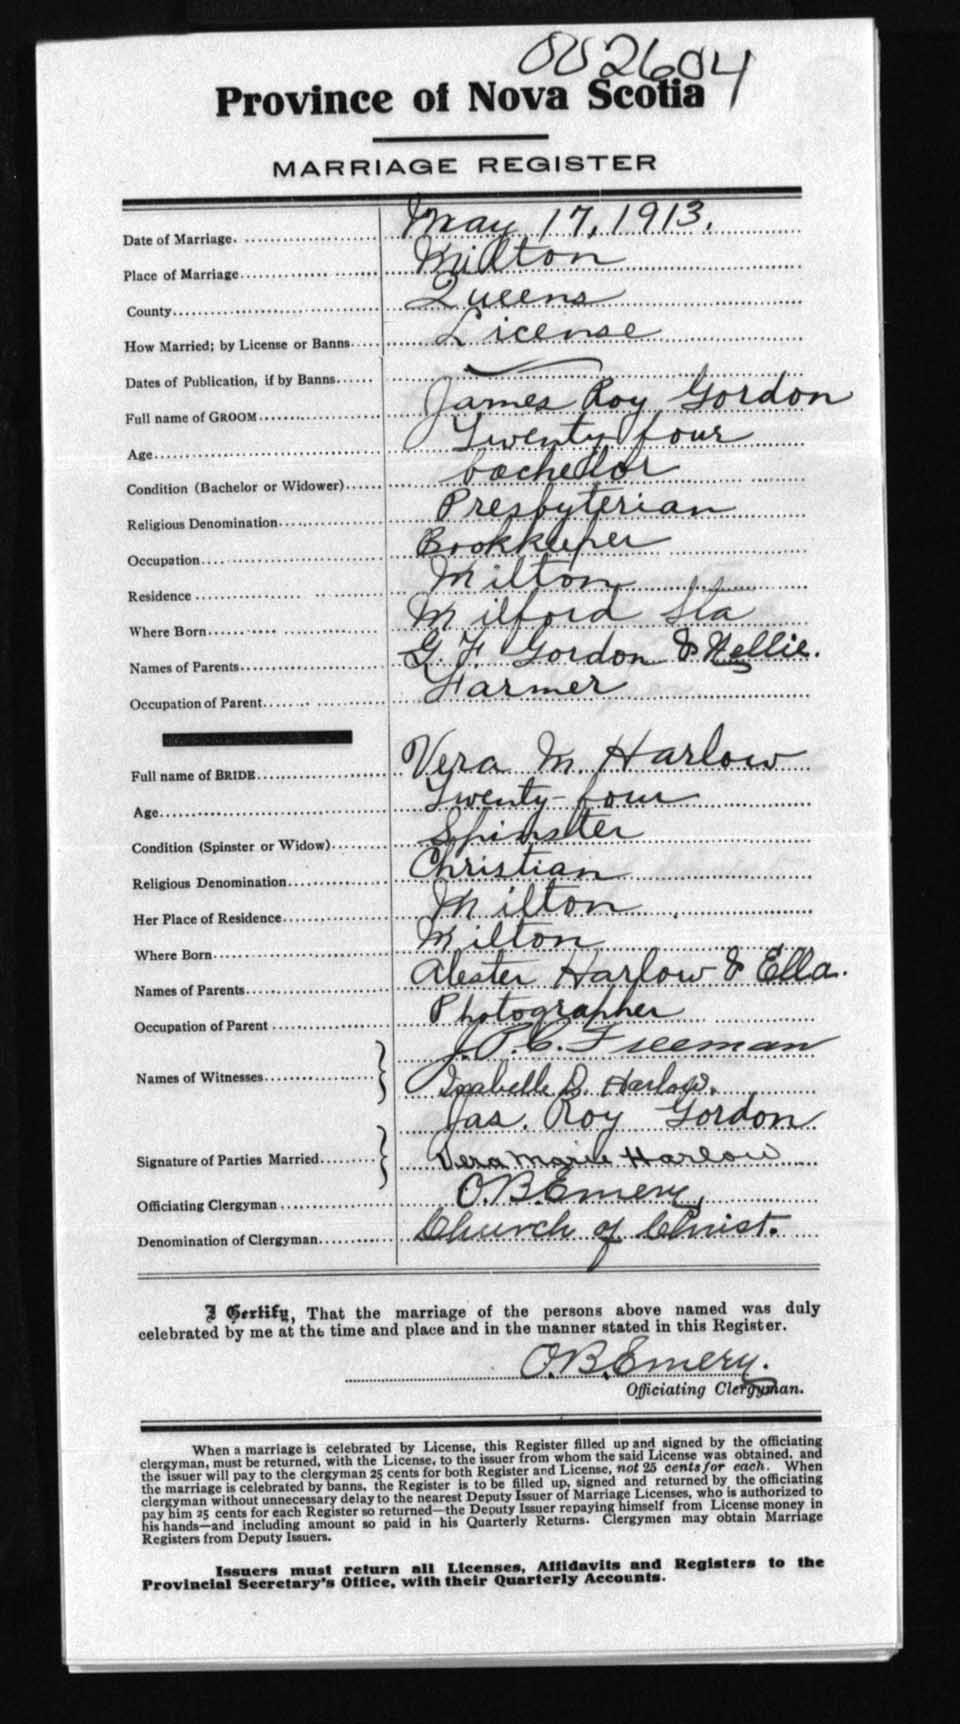 002604
Province of Nova Scotia
MARRIAGE REGISTER
Date of Marriage. May 17, 1913.
Place of Marriage Milton
County Queens
How Married; by License or Banns License
Dates of Publication, if by Banns
Full name of GROOM James Roy Gordon
Age Twenty four
Condition (Bachelor or Widower) bachellor
Religious Denomination Presbyterian
Occupation Bookkeeper
Residence Milton
Where Born Milford Sta
Names of Parents G. F. Gordon & Nellie.
Occupation of Parent Farmer
Full name of BRIDE Vera M. Harlow
Age Twenty-four
Condition (Spinster or Widow) Spinster
Religious Denomination Christian
Her Place of Residence Milton
Where Born Milton
Names of Parents Alester Harlow & Ella.
Occupation of Parent Photographer
J. P. C. Freeman
Names of Witnesses
Isabelle D. Harlow.
Jas. Roy Gordon
Signature of Parties Married Vera Marie Harlow
Officiating Clergyman O.B. Emery,
Denomination of Clergyman Church of Christ.
I Certify, That the marriage of the persons above named was duly
celebrated by me at the time and place and in the manner stated in this Register.
O.B. Emery.
Officiating Clergyman.
When a marriage is celebrated by License, this Register filled up and signed by the officiating
clergyman, must be returned, with the License, to the issuer from whom the said License was obtained, and
the issuer will pay to the clergyman 25 cents for both Register and License, not 25 cents for each. When
the marriage is celebrated by banns, the Register is to be filled up, signed and returned by the officiating
clergyman without unnecessary delay to the nearest Deputy Issuer of Marriage Licenses, who is authorized to
pay him 25 cents for each Register so returned—the Deputy Issuer repaying himself from License money in
his hands—and including amount so paid in his Quarterly Returns. Clergymen may obtain Marriage
Registers from Deputy Issuers.
Issuers must return all Licenses, Affidavits and Registers to the
Provincial Secretary's Office, with their Quarterly Accounts.